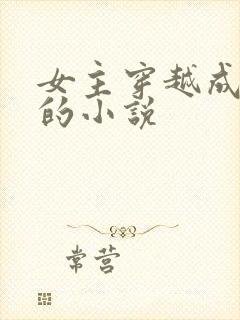 女主穿越成
的小说
常营